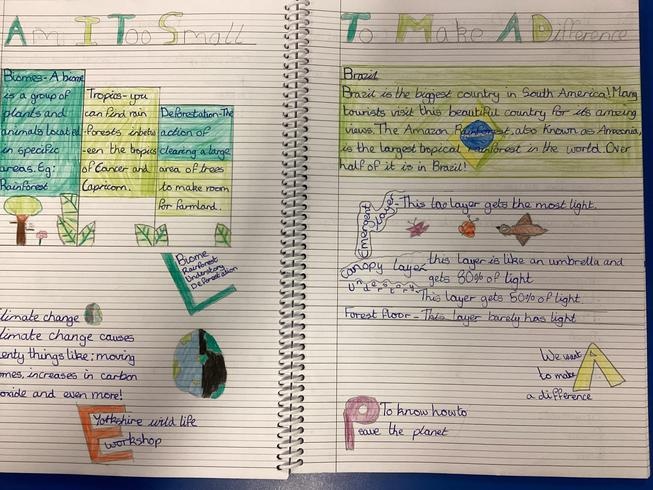 Am I Too Small
To Make A Difference
Biomes- A biome
is a group of
plants and
animals located
in specific
areas. Eg:
Rainforest
Tropics- you
can find rain
-forests inbetw
-een the tropics
of Cancer and
Capricorn.
Deforestation- The
action of
clearing a large
area of trees
to make room
for farmland.
Biome
Rainforest
Understory
Deforestation
L
limate change
limate change causes
enty things like: moving
mes, increases in carbon
oxide and even more!
E
Yorkshire wild life
workshop
Brazil
Brazil is the biggest country in South America! Many
tourists visit this beautiful country for its amazing
views. The Amazon Rainforest, also known as Amazonia,
is the largest tropical rainforest in the world. Over
half of it is in Brazil!
Emergent Layer - This layer gets the most light.
Canopy layer this layer is like an umbrella and
gets 80% of light
Understory This layer gets 50% of light
Forest floor - This layer barely has light
We want
to make
a difference
A
P
To know how to
save the planet